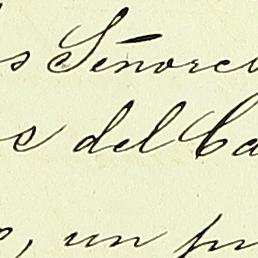 s Señores
s del Ca
, un pr